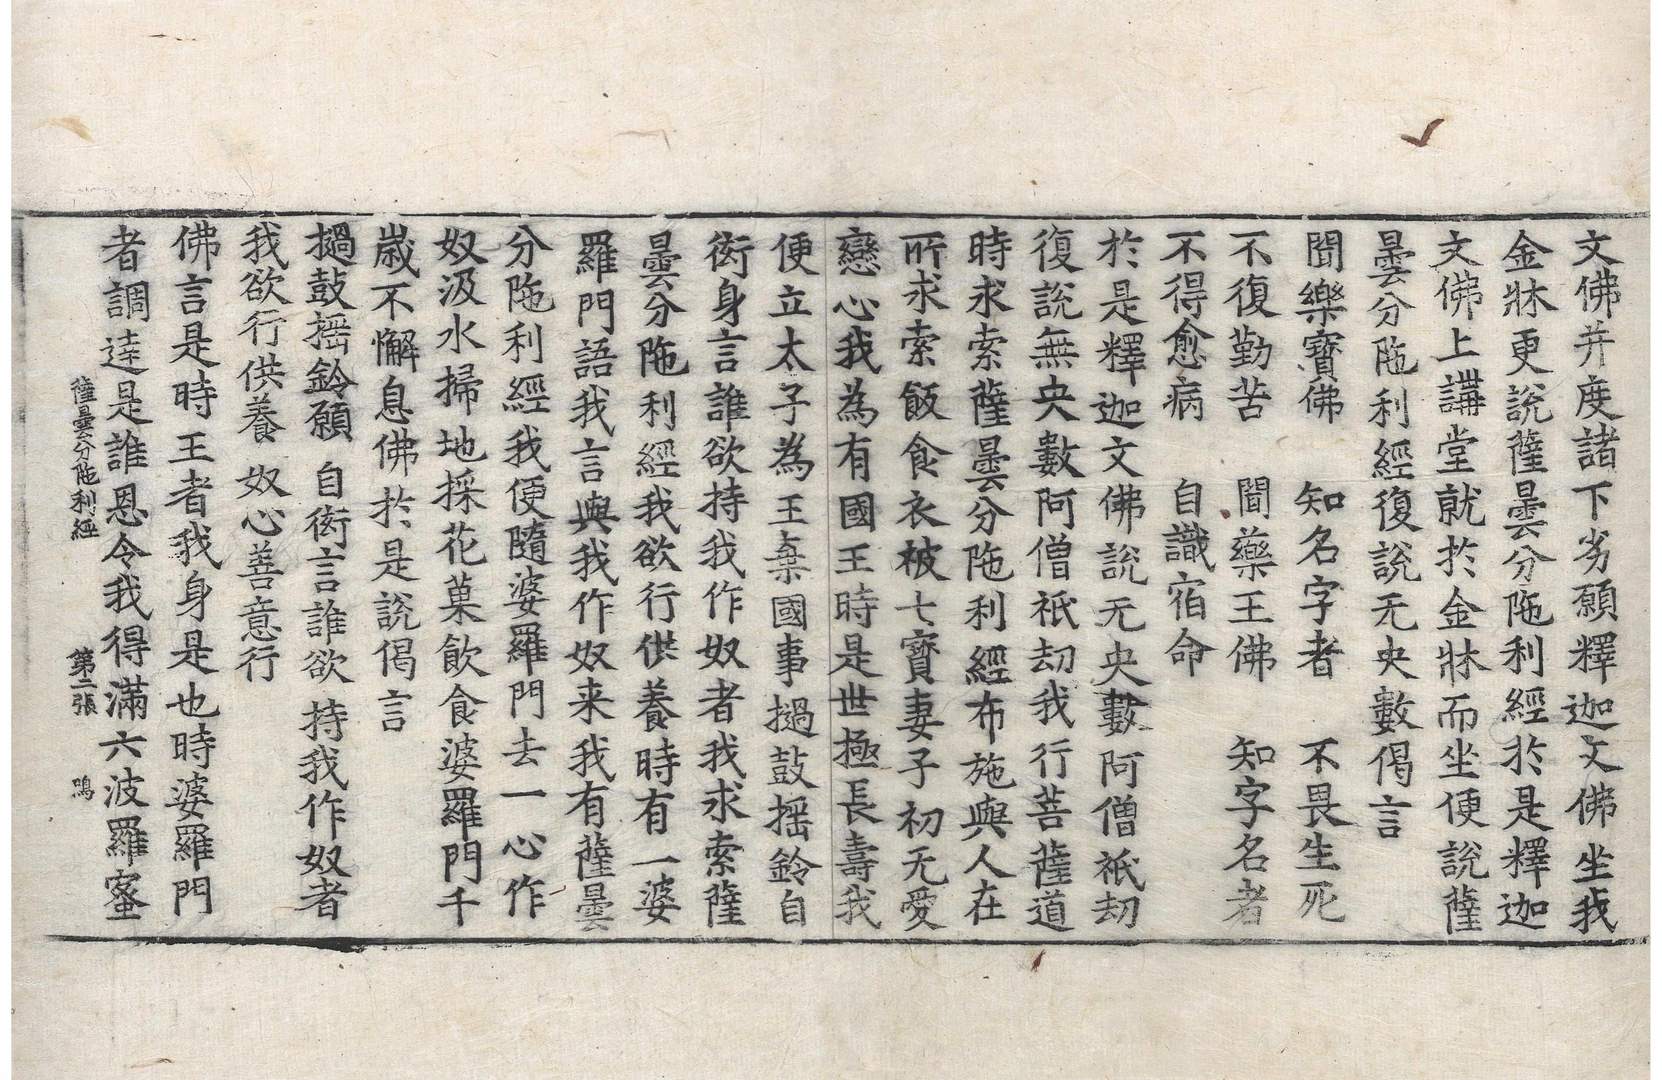 文佛并度諸下劣願釋迦文佛坐我
金牀更說薩曇分陁利經於是釋迦
文佛上講堂就於金牀而坐便說薩
曇分陁利經復說无央數偈言
聞樂寶佛　知名字者　不畏生死
不復勤苦　聞藥王佛　知字名者
不得愈病　自識宿命
於是釋迦文佛說无央數阿僧祇劫
復說無央數阿僧祇劫我行菩薩道
時求索薩曇分陁利經布施與人在
所求索飯食衣被七寶妻子初无愛
戀心我為有國王時是世極長壽我
便立太子為王棄國事撾鼓摇鈴自
衒身言誰欲持我作奴者我求索薩
曇分陁利經我欲行供養時有一婆
羅門語我言與我作奴来我有薩曇
分陁利經我便隨婆羅門去一心作
奴汲水掃地採花菓飲食婆羅門千
歲不懈息佛於是說偈言
撾鼓摇鈴願　自衒言誰欲　持我作奴者
我欲行供養　奴心善意行
佛言是時王者我身是也時婆羅門
者調達是誰恩令我得滿六波羅蜜
薩曇分陁利經　第二張　鳴